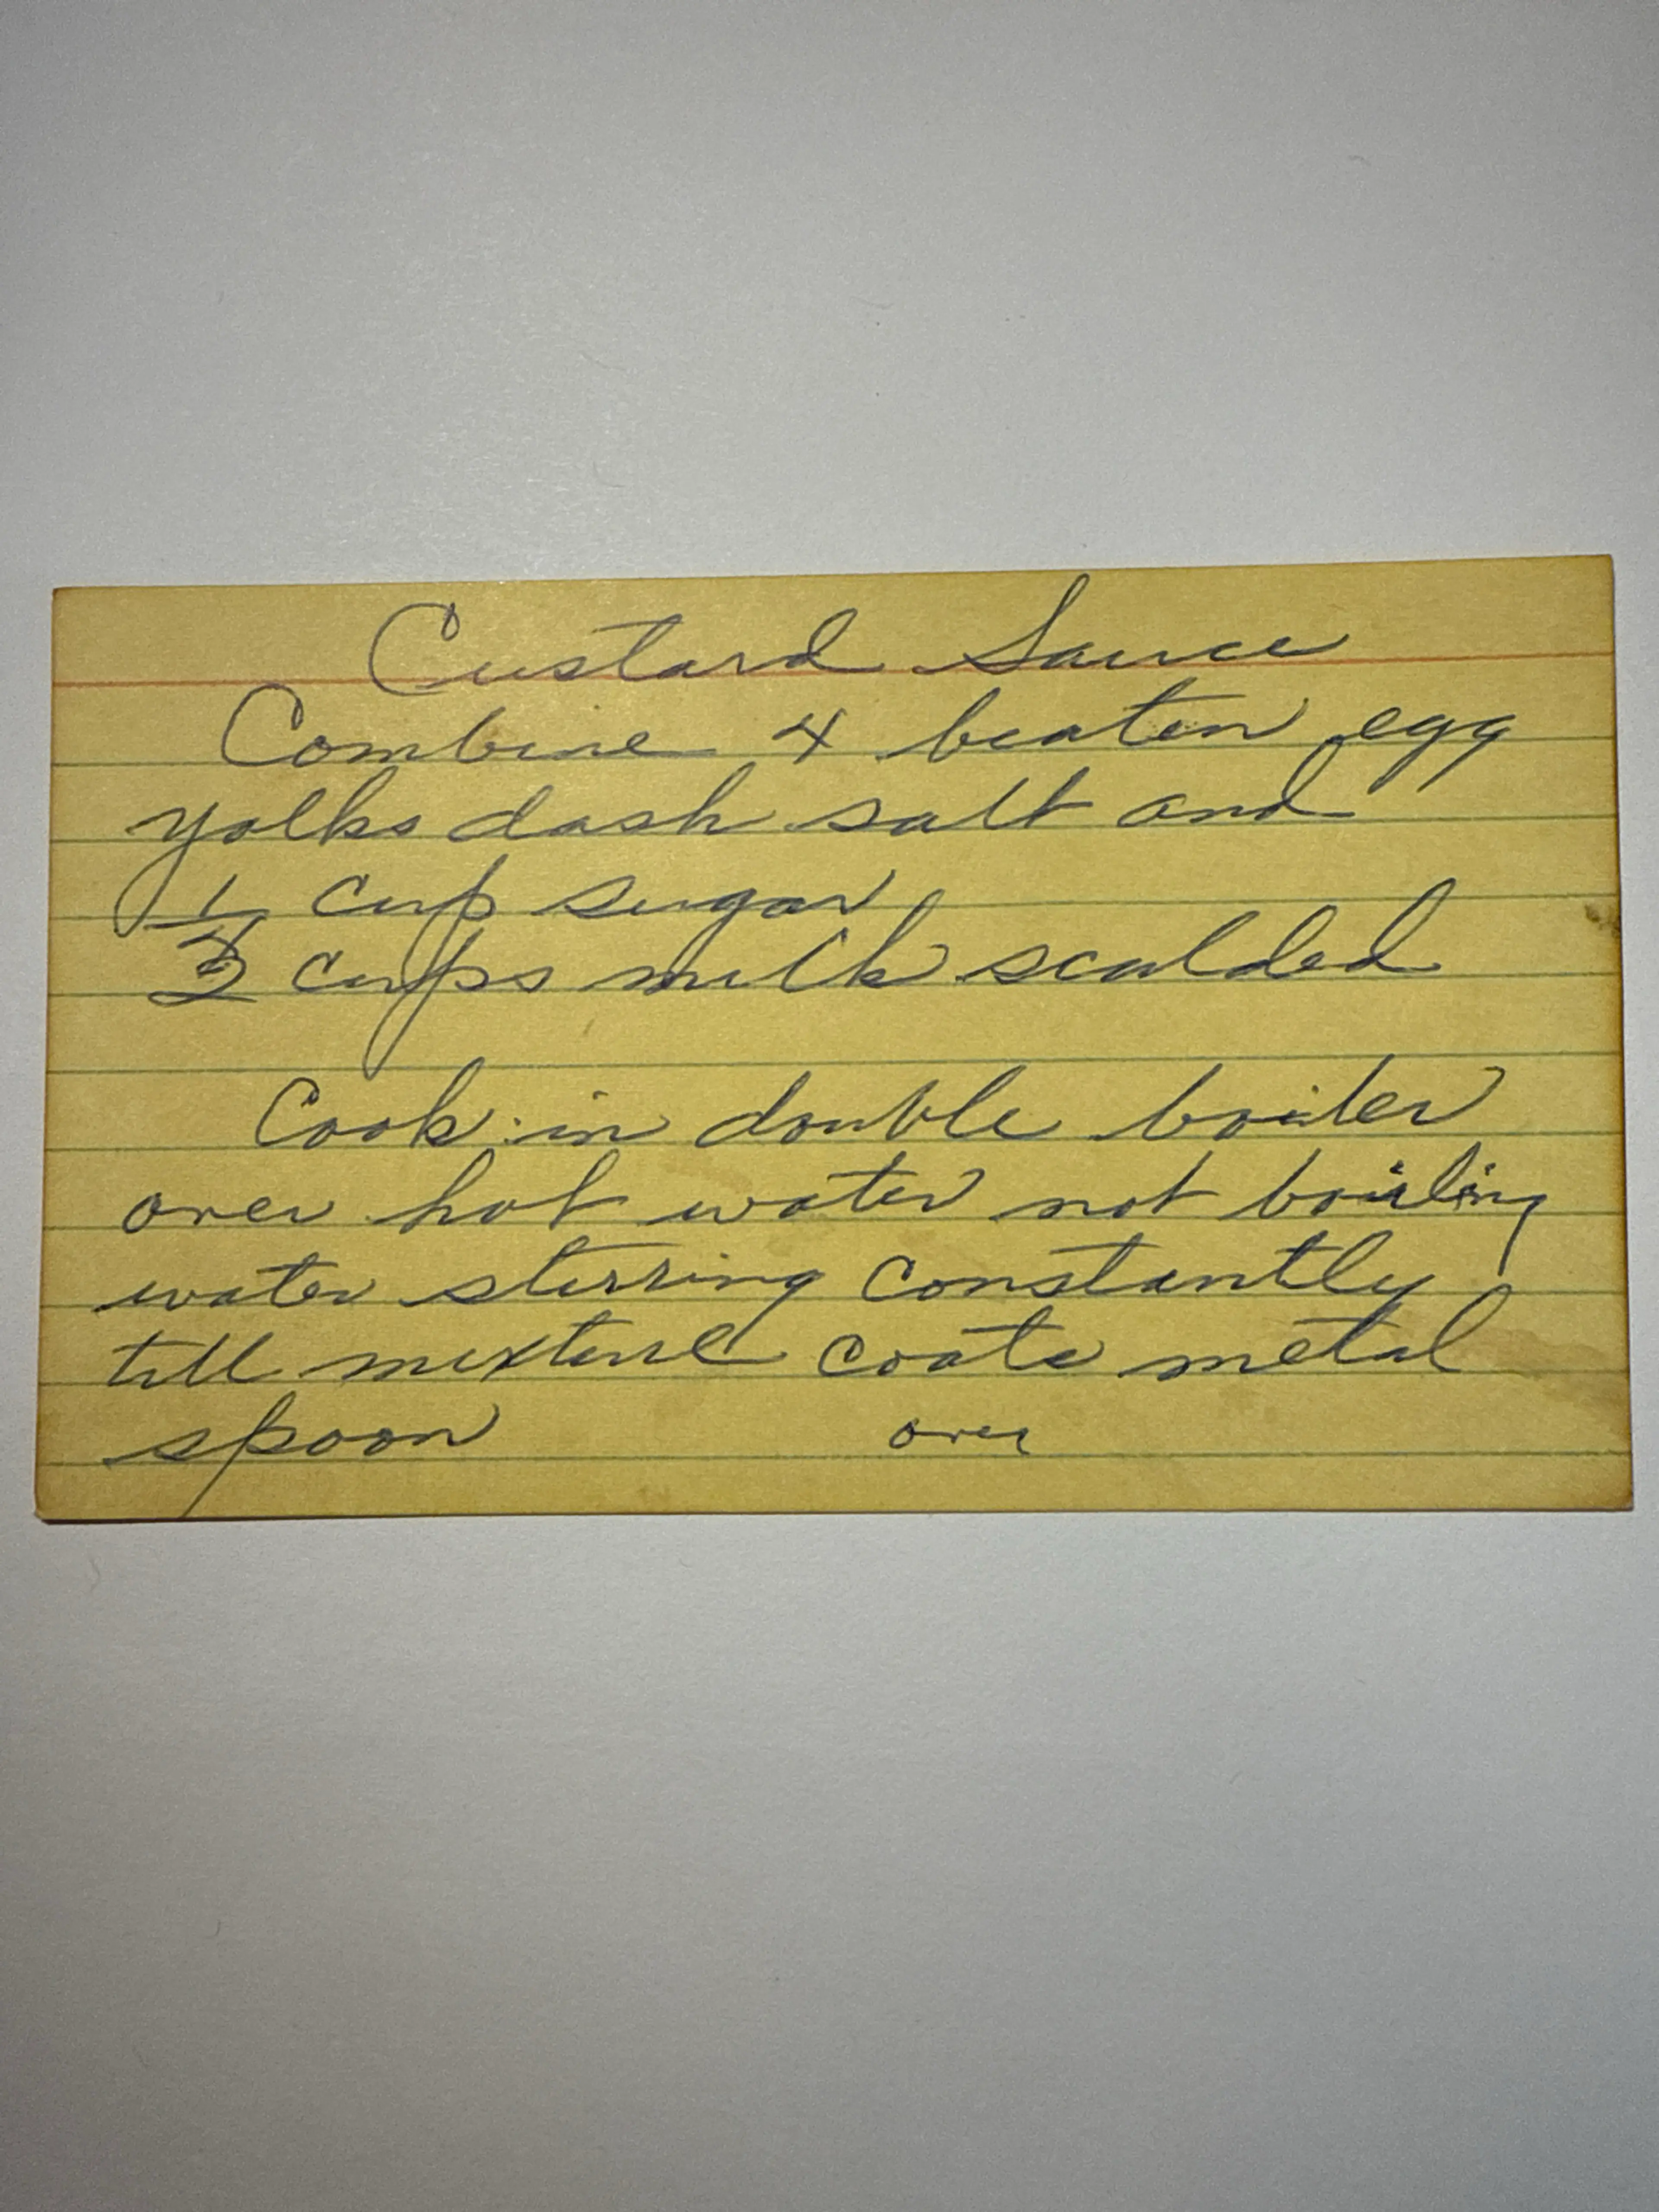 Custard Sauce
Combine 4 beaten egg
yolks dash salt and
1/4 cup sugar
2 cups milk scalded
Cook in double boiler
over hot water not boiling
water stirring constantly
till mixture coats metal
spoon over